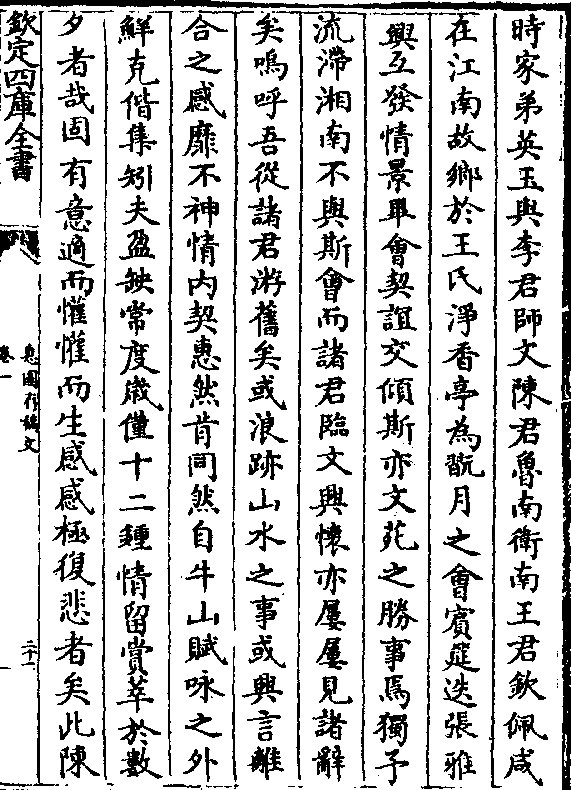 時家弟英玉與李君師文陳君魯南衛南王君欽佩咸
在江南故鄉於王氏淨香亭為翫月之會賓筵迭張雅
興互發情景畢會契誼交傾斯亦文苑之勝事焉獨予
流滯湘南不與斯會而諸君臨文興懷亦屢屢見諸辭
矣嗚呼吾從諸君游舊矣或浪跡山水之事或興言離
合之感靡不神情内契惠然肯同然自牛山賦咏之外
鮮克偕集矧夫盈缺常度歲僅十二鍾情留賞萃於數
夕者哉固有意適而懽懽而生感感極復悲者矣此陳
欽定四庫全書
息園存稿文
卷一
二十一